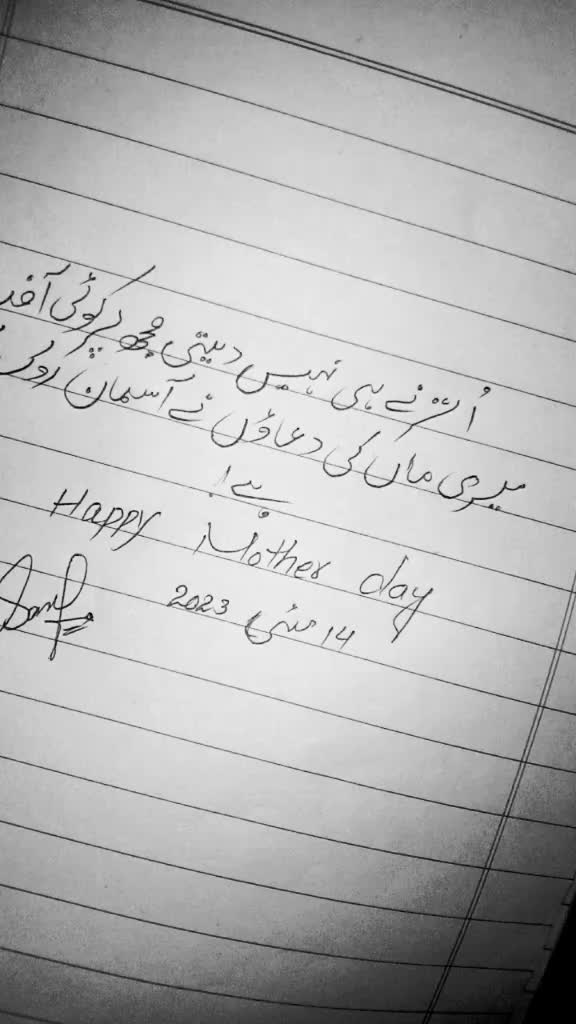 اُترنے ہی نہیں دیتی مجھ پر کوئی آفت
میری ماں کی دعاؤں نے آسمان روک
ہے!
Happy Mother day
14 مئی 2023